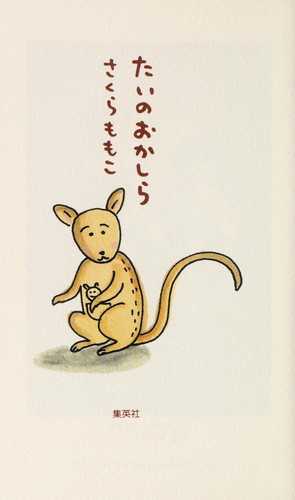 たいのおかしら
さくらももこ
集英社